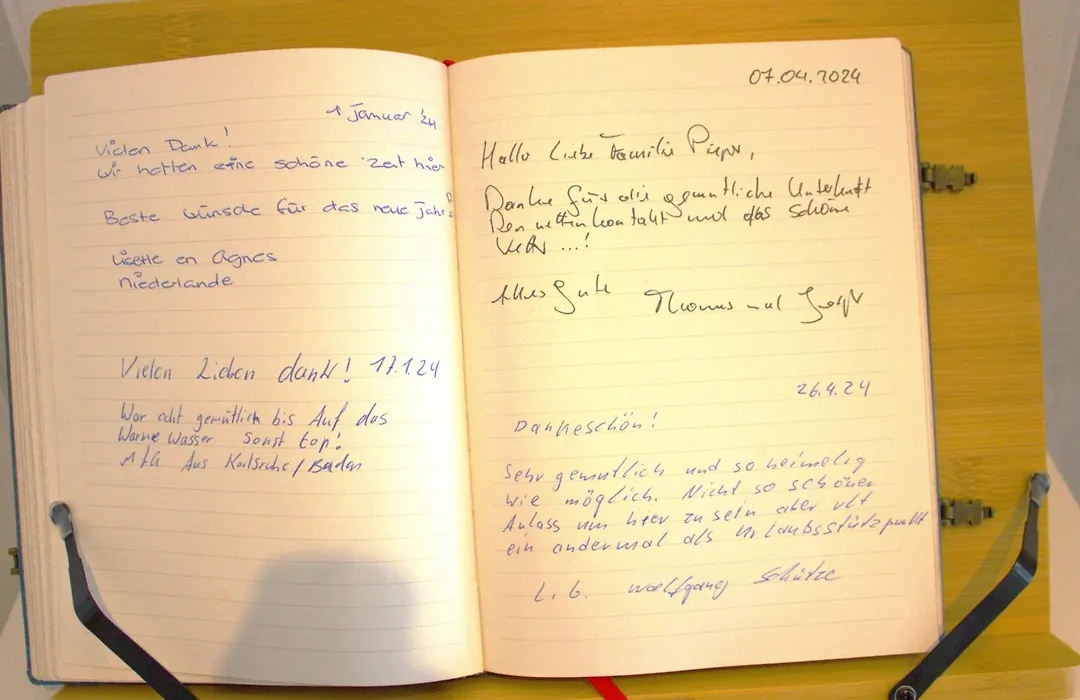 1 Januar '24
Vielen Dank!
wir hatten eine schöne Zeit hier
Beste wünsche für das neue Jahr
Lisette en Agnes
Niederlande
Vielen Lieben dank! 17.1.24
War echt gemütlich bis Auf das
Warme Wasser sonst top!
MfG. Aus Karlsruhe/Baden
07.04.2024
Hallo Liebe Familie Pieper,
Danke für die gemütliche Unterkunft
Den netten Kontakt und das schöne
...!
Alles Gute Thomas und
26.4.24
Dankeschön!
Sehr gemütlich und so heimelig
wie möglich. Nicht so schöner
Anlass um hier zu sein aber vlt
ein andermal als Urlaubsstützpunkt
L.G. Wolfgang Schütze